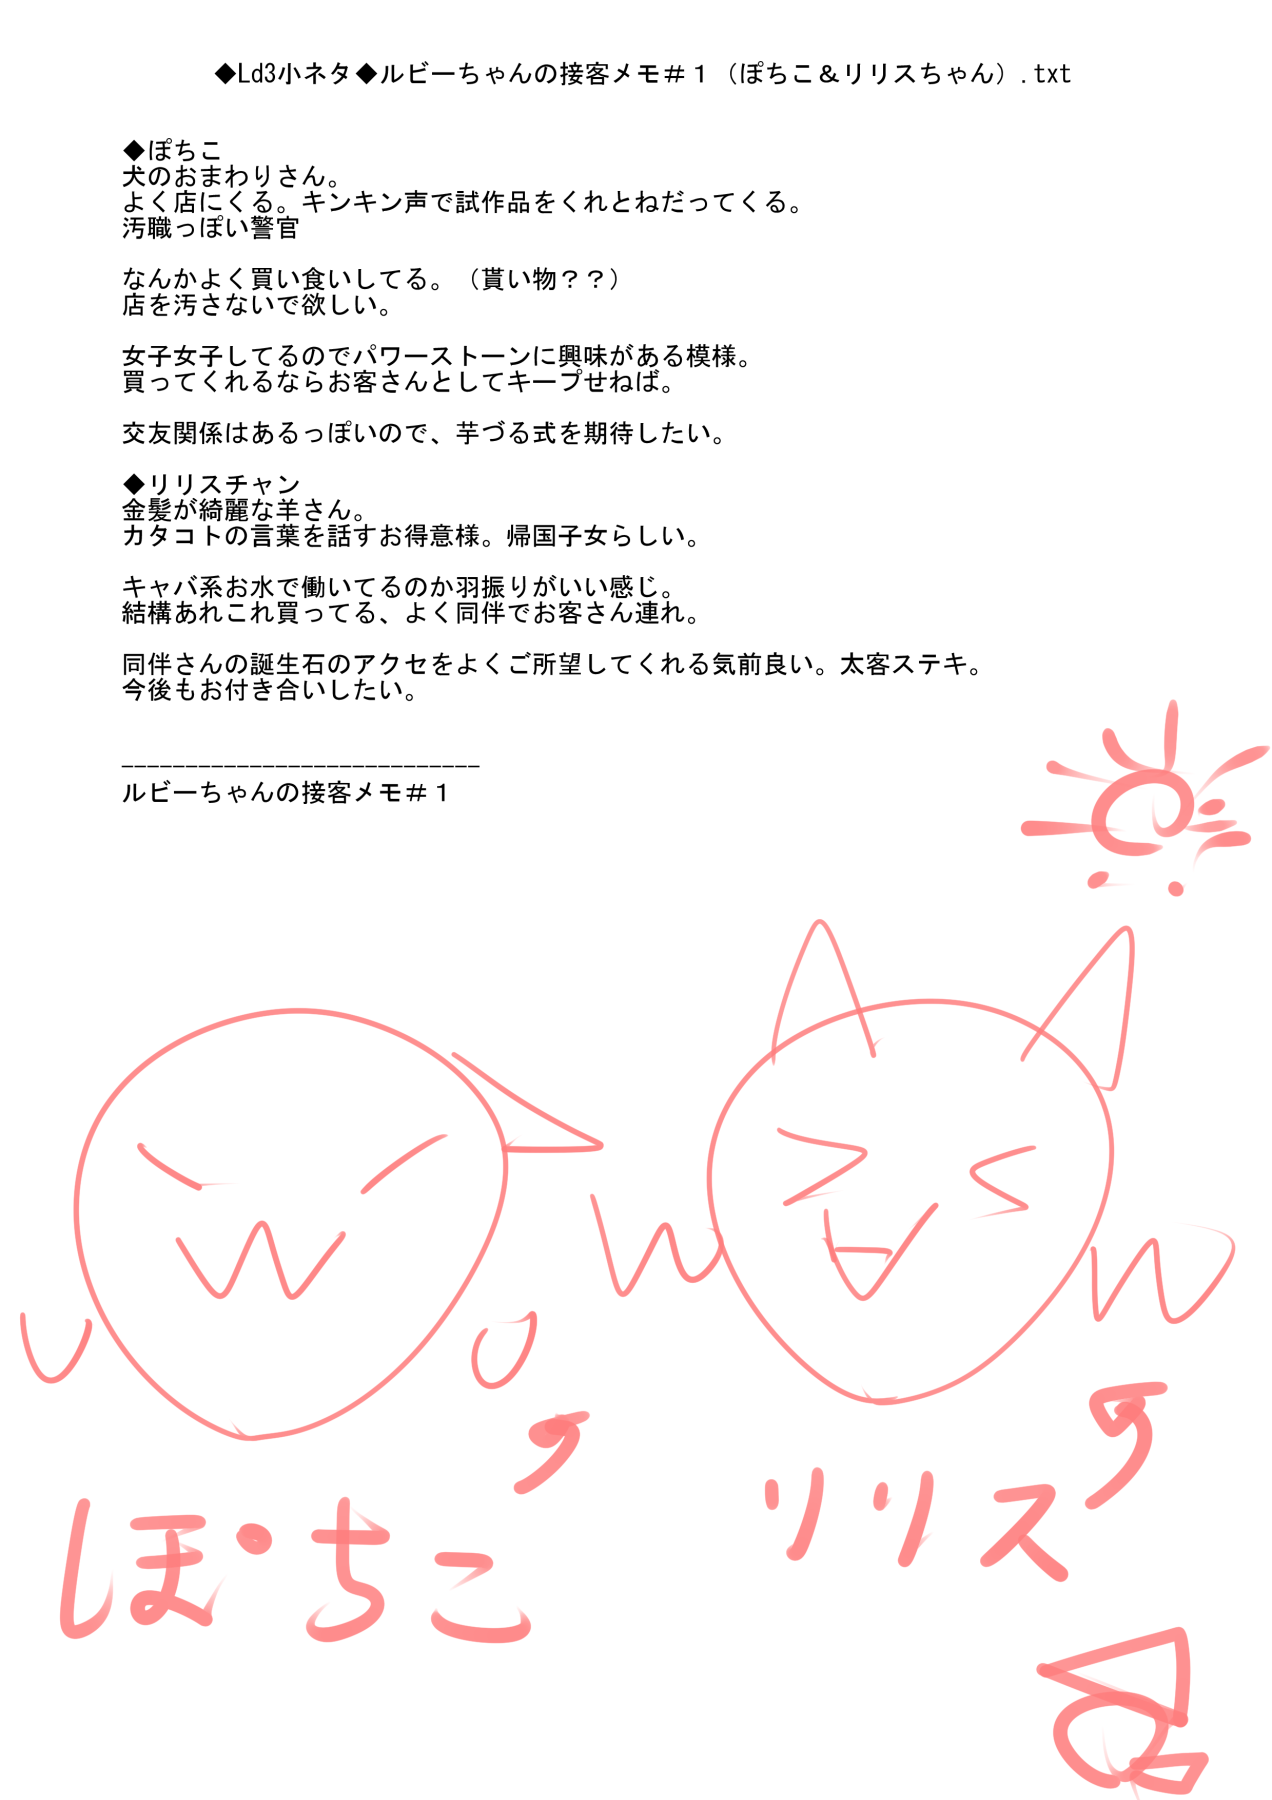 ◆Ld3小ネタ◆ルビーちゃんの接客メモ＃１（ぽちこ＆リリスちゃん）.txt
◆ぽちこ
犬のおまわりさん。
よく店にくる。キンキン声で試作品をくれとねだってくる。
汚職っぽい警官
なんかよく買い食いしてる。（貰い物？？）
店を汚さないで欲しい。
女子女子してるのでパワーストーンに興味がある模様。
買ってくれるならお客さんとしてキープせねば。
交友関係はあるっぽいので、芋づる式を期待したい。
◆リリスチャン
金髪が綺麗な羊さん。
カタコトの言葉を話すお得意様。帰国子女らしい。
キャバ系お水で働いてるのか羽振りがいい感じ。
結構あれこれ買ってる、よく同伴でお客さん連れ。
同伴さんの誕生石のアクセをよくご所望してくれる気前良い。太客ステキ。
今後もお付き合いしたい。
____________________________
ルビーちゃんの接客メモ＃１
ぽちこ
リリス